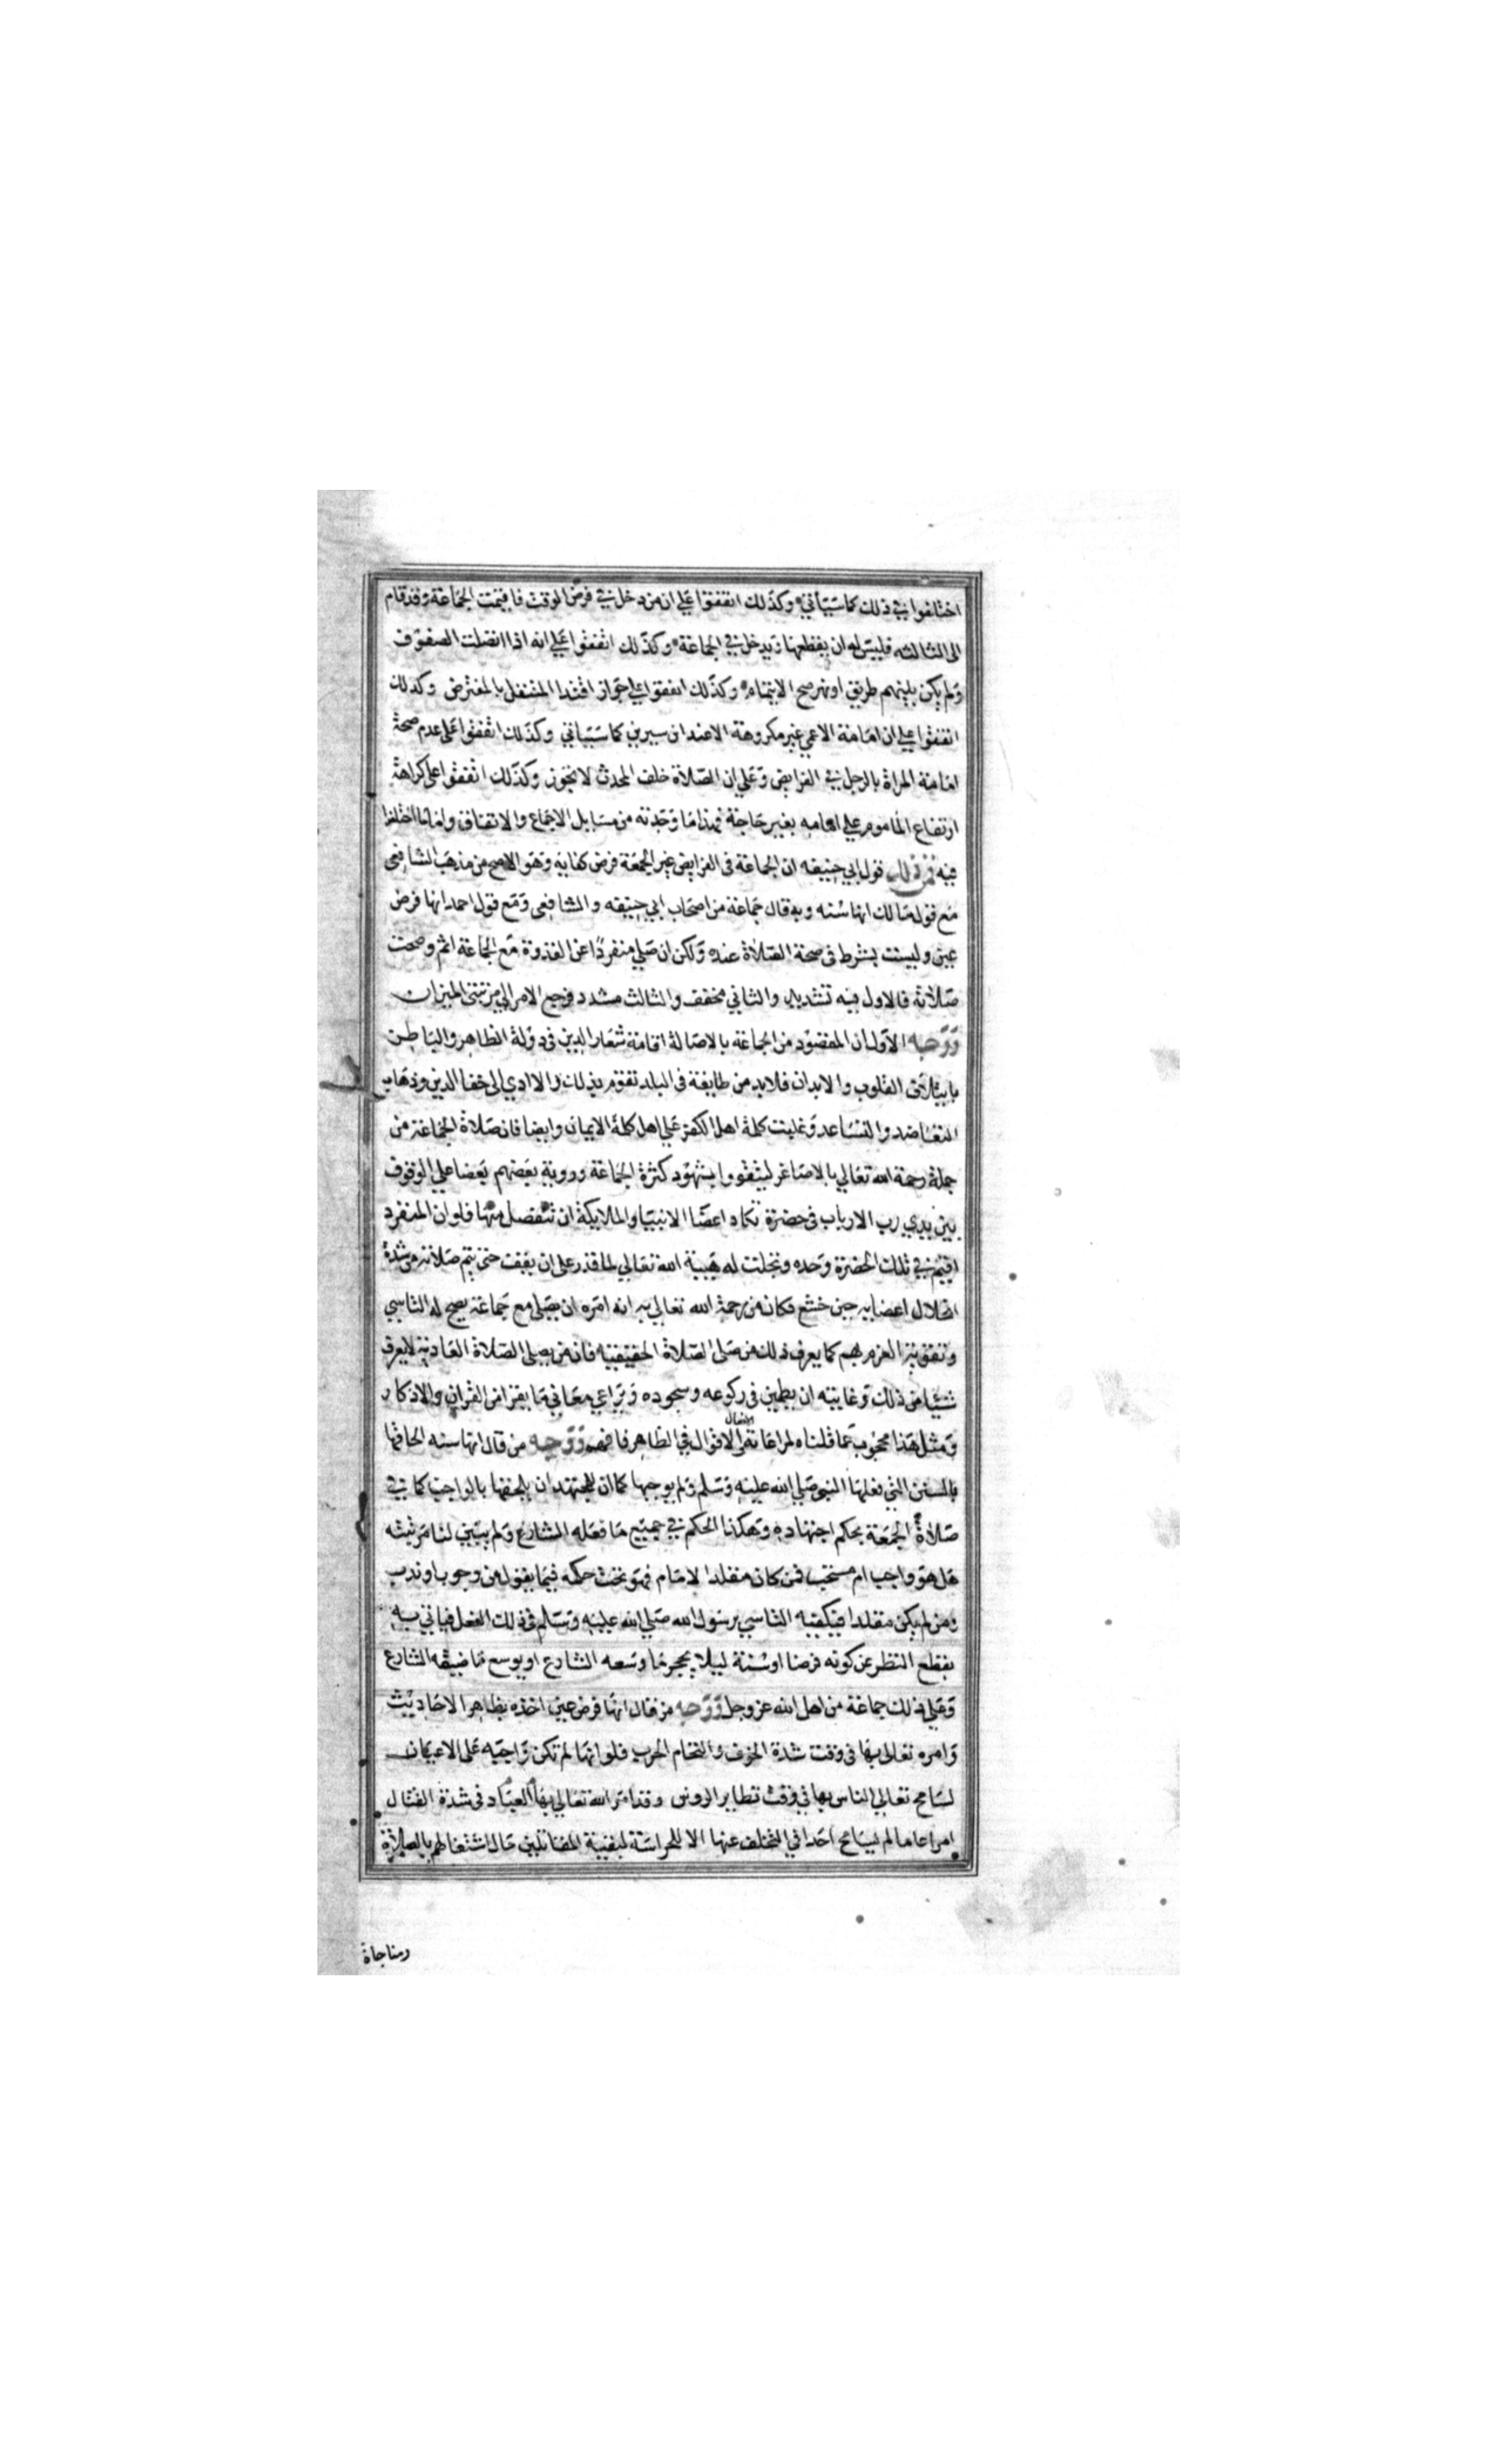 اختلفوا في ذلك كما سياتي وكذلك اتفقوا علي ان من دخل في فرض الوقت فاقيمت الجماعة وقد قام
الى الثالثه فليس له ان يقطعها ويدخل في الجماعة وكذلك اتفقوا علي انه اذا اتصلت الصفوف
ولم يكن بينهم طريق او نهر صح الايتمام وكذلك اتفقوا علي جواز اقتدا المتنفل بالمفترض وكذلك
اتفقوا علي ان امامة الاعمي غير مكروهة الا عند ابن سيرين كما سياتي وكذلك اتفقوا على عدم صحة
امامة المراة بالرجل في الفرايض وعلي ان الصلاة خلف المحدث لا تجوز وكذلك اتفقوا على كراهة
ارتفاع الماموم علي امامه بغير حاجة فهذا ما وجدته من مسايل الاجماع والاتفاق واما ما اختلفوا
فيه فمن ذلك قول ابي حنيفه ان الجماعة في الفرايض غير الجمعة فرض كفايه وهو الاصح من مذهب الشافعي
مع قول مالك انها سنه وبه قال جماعة من اصحاب ابي حنيفه والشافعي ومع قول احمد انها فرض
عين وليست بشرط في صحة الصلاة عنده ولكن ان صلي منفردا عن القدوة مع الجماعة اثم وصحت
صلاته فالاول فيه تشديد والثاني مخفف والثالث مشدد فرجع الامر الي مرتبتي الميزان
ووجه الاول ان المقصود من الجماعة بالاصالة اقامة شعار الدين في دولة الظاهر والباطن
بايتلاف القلوب والابدان فلابد من طايفة في البلد تقوم بذلك والا ادي الى خفا الدين وذهاب
التعاضد والتساعد وغلبت كلمة اهل الكفر علي اهل كلمة الايمان وايضا فان صلاة الجماعة من
جملة رحمة الله تعالي بالاصاغر ليتقووا بشهود كثرة الجماعة وروية بعضهم بعضا علي الوقوف
بين يدي رب الارباب في حضرة تكاد اعضا الانبيا والملايكة ان تنفصل منها فلو ان المنفرد
اقيم في تلك الحضرة وحده وتجلت له هيبة الله تعالي لما قدر على ان يقف حتى يتم صلاته من شدة
انحلال اعضايه حين خشع فكان من رحمة الله تعالي به انه امره ان يصلي مع جماعة يصح له التاسي
وتقوية العزم بهم كما يعرف ذلك من صلى الصلاة الحقيقيه فان من يصلى الصلاة العادية لا يعرف
شيئا من ذلك وغايته ان يطمين في ركوعه وسجوده ويراعي معاني ما يقرا من القران والاذكار
ومثل هذا محجوب عما قلناه لمراعاته الافعال والاقوال في الظاهر فافهم ووجه من قال انها سنه الحاقها
بالسنن التي فعلها النبي صلي الله عليه وسلم ولم يوجبها كما ان للمجتهد ان يلحقها بالواجب كما في
صلاة الجمعة بحكم اجتهاده وهكذا الحكم في جميع ما فعله الشارع ولم يبين لنا مرتبته
هل هو واجب ام مستحب فمن كان مقلدا لامام فهو تحت حكمه فيما يقول من وجوب او ندب
ومن لم يكن مقلدا فيكفيه التاسي برسول الله صلي الله عليه وسلم في ذلك الفعل فياتي به
بقطع النظر عن كونه فرضا او سنة ليلا يحجر ما وسعه الشارع او يوسع ما ضيقه الشارع
وعلي ذلك جماعة من اهل الله عز وجل ووجه من قال انها فرض عين اخذه بظاهر الاحاديث
وامره تعالى بها في وقت شدة الخوف والتحام الحرب فلو انها لم تكن واجبه على الاعيان
لسامح تعالي الناس بها في وقت تطاير الروس وقد امر الله تعالي بها العباد في شدة القتال
امرا عاما لم يسامح احدا في التخلف عنها الا للحراسة لبقية المقاتلين حال اشتغالهم بالصلاة
ومناجاة